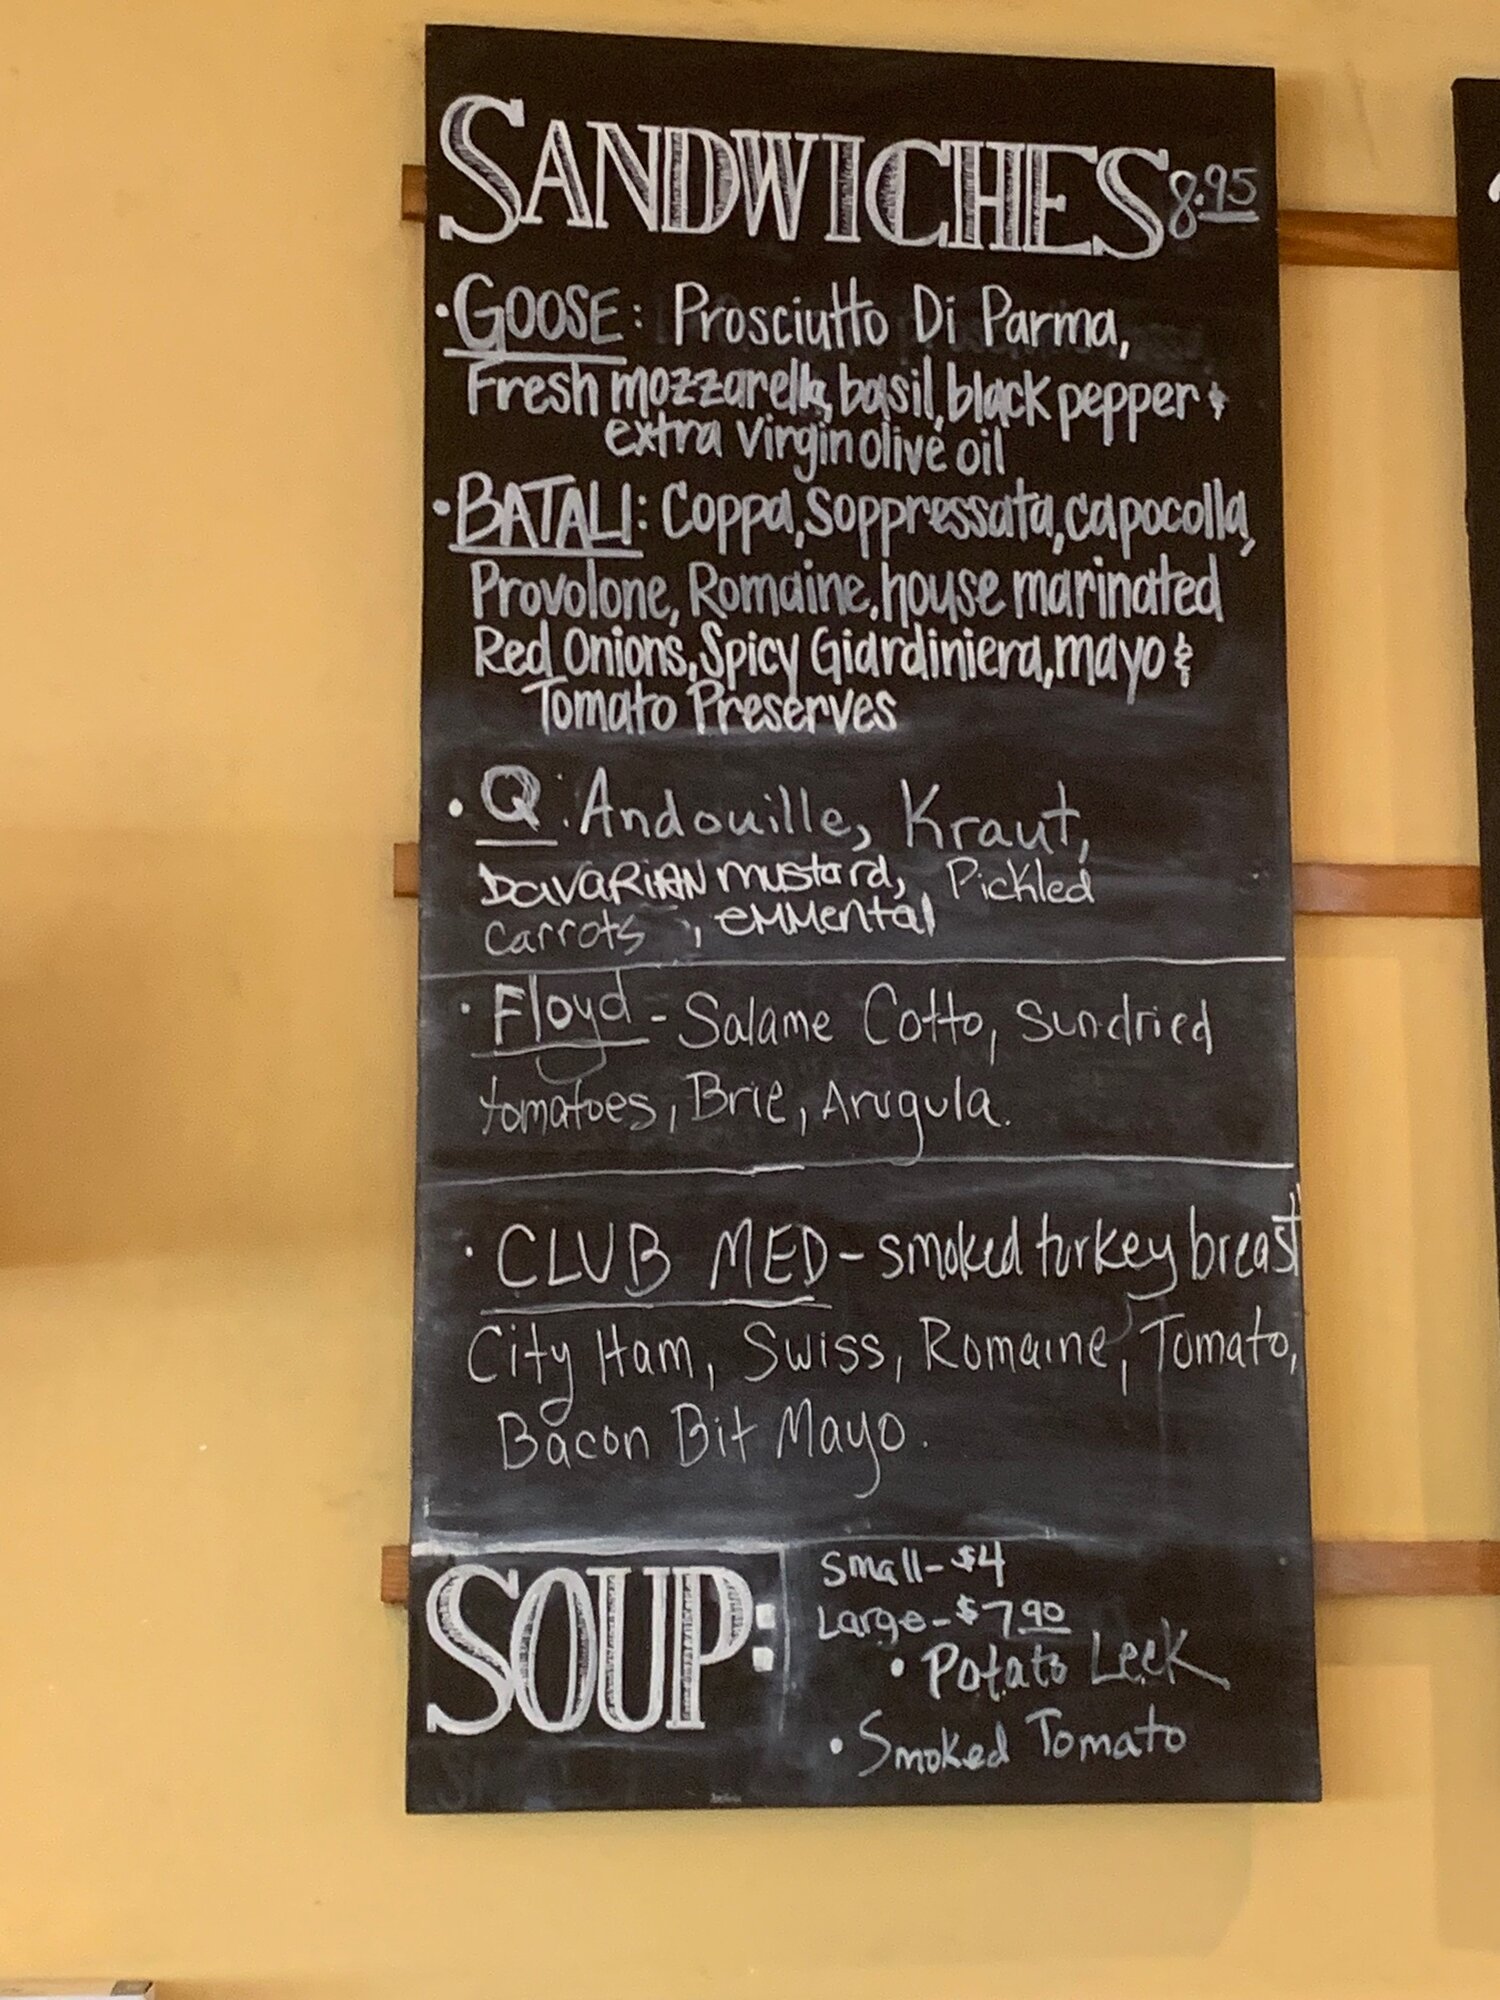 SANDWICHES 8.95
• GOOSE: Prosciutto Di Parma,
Fresh mozzarella, basil, black pepper &
extra virgin olive oil
• BATALI: Coppa, Soppressata, capocolla,
Provolone, Romaine, house marinated
Red Onions, Spicy Giardiniera, mayo &
Tomato Preserves
• Q: Andouille, Kraut,
BavaRiAN mustard, Pickled
carrots, emmental
• Floyd - Salame Cotto, Sundried
tomatoes, Brie, Arugula.
• CLUB MED - smoked turkey breast
City Ham, Swiss, Romaine, Tomato,
Bacon Bit Mayo.
SOUP:
Small - $4
Large - $7.90
• Potato Leek
• Smoked Tomato